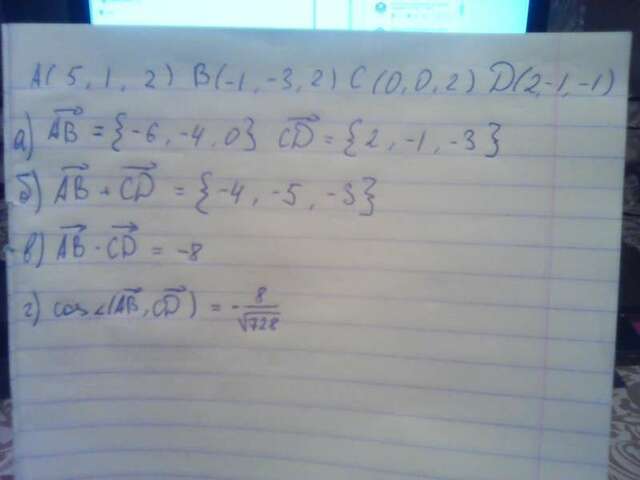 A(5, 1, 2) B(-1, -3, 2) C(0, 0, 2) D(2,-1, -1)
а) $\overrightarrow{AB}$ = {-6, -4, 0} $\overrightarrow{CD}$ = {2, -1, -3}
б) $\overrightarrow{AB}$ + $\overrightarrow{CD}$ = {-4, -5, -3}
в) $\overrightarrow{AB}$ · $\overrightarrow{CD}$ = -8
г) cos ∠($\overrightarrow{AB}$, $\overrightarrow{CD}$) = $-\frac{8}{\sqrt{728}}$